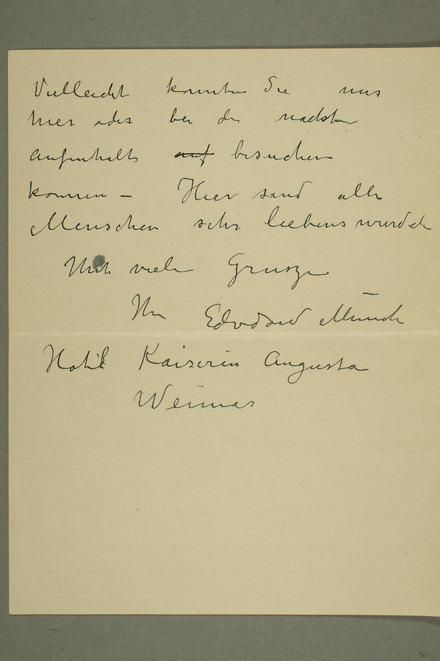 Vielleicht konnten Sie uns
hier oder bei der nächsten
Aufenhalts auf besuchen
können – Hier sind alle
Menschen sehr liebenswürdch
Mit viele Grusze
Ihr Edvdard Munch
Hotel Kaiserin Augusta
Weimar